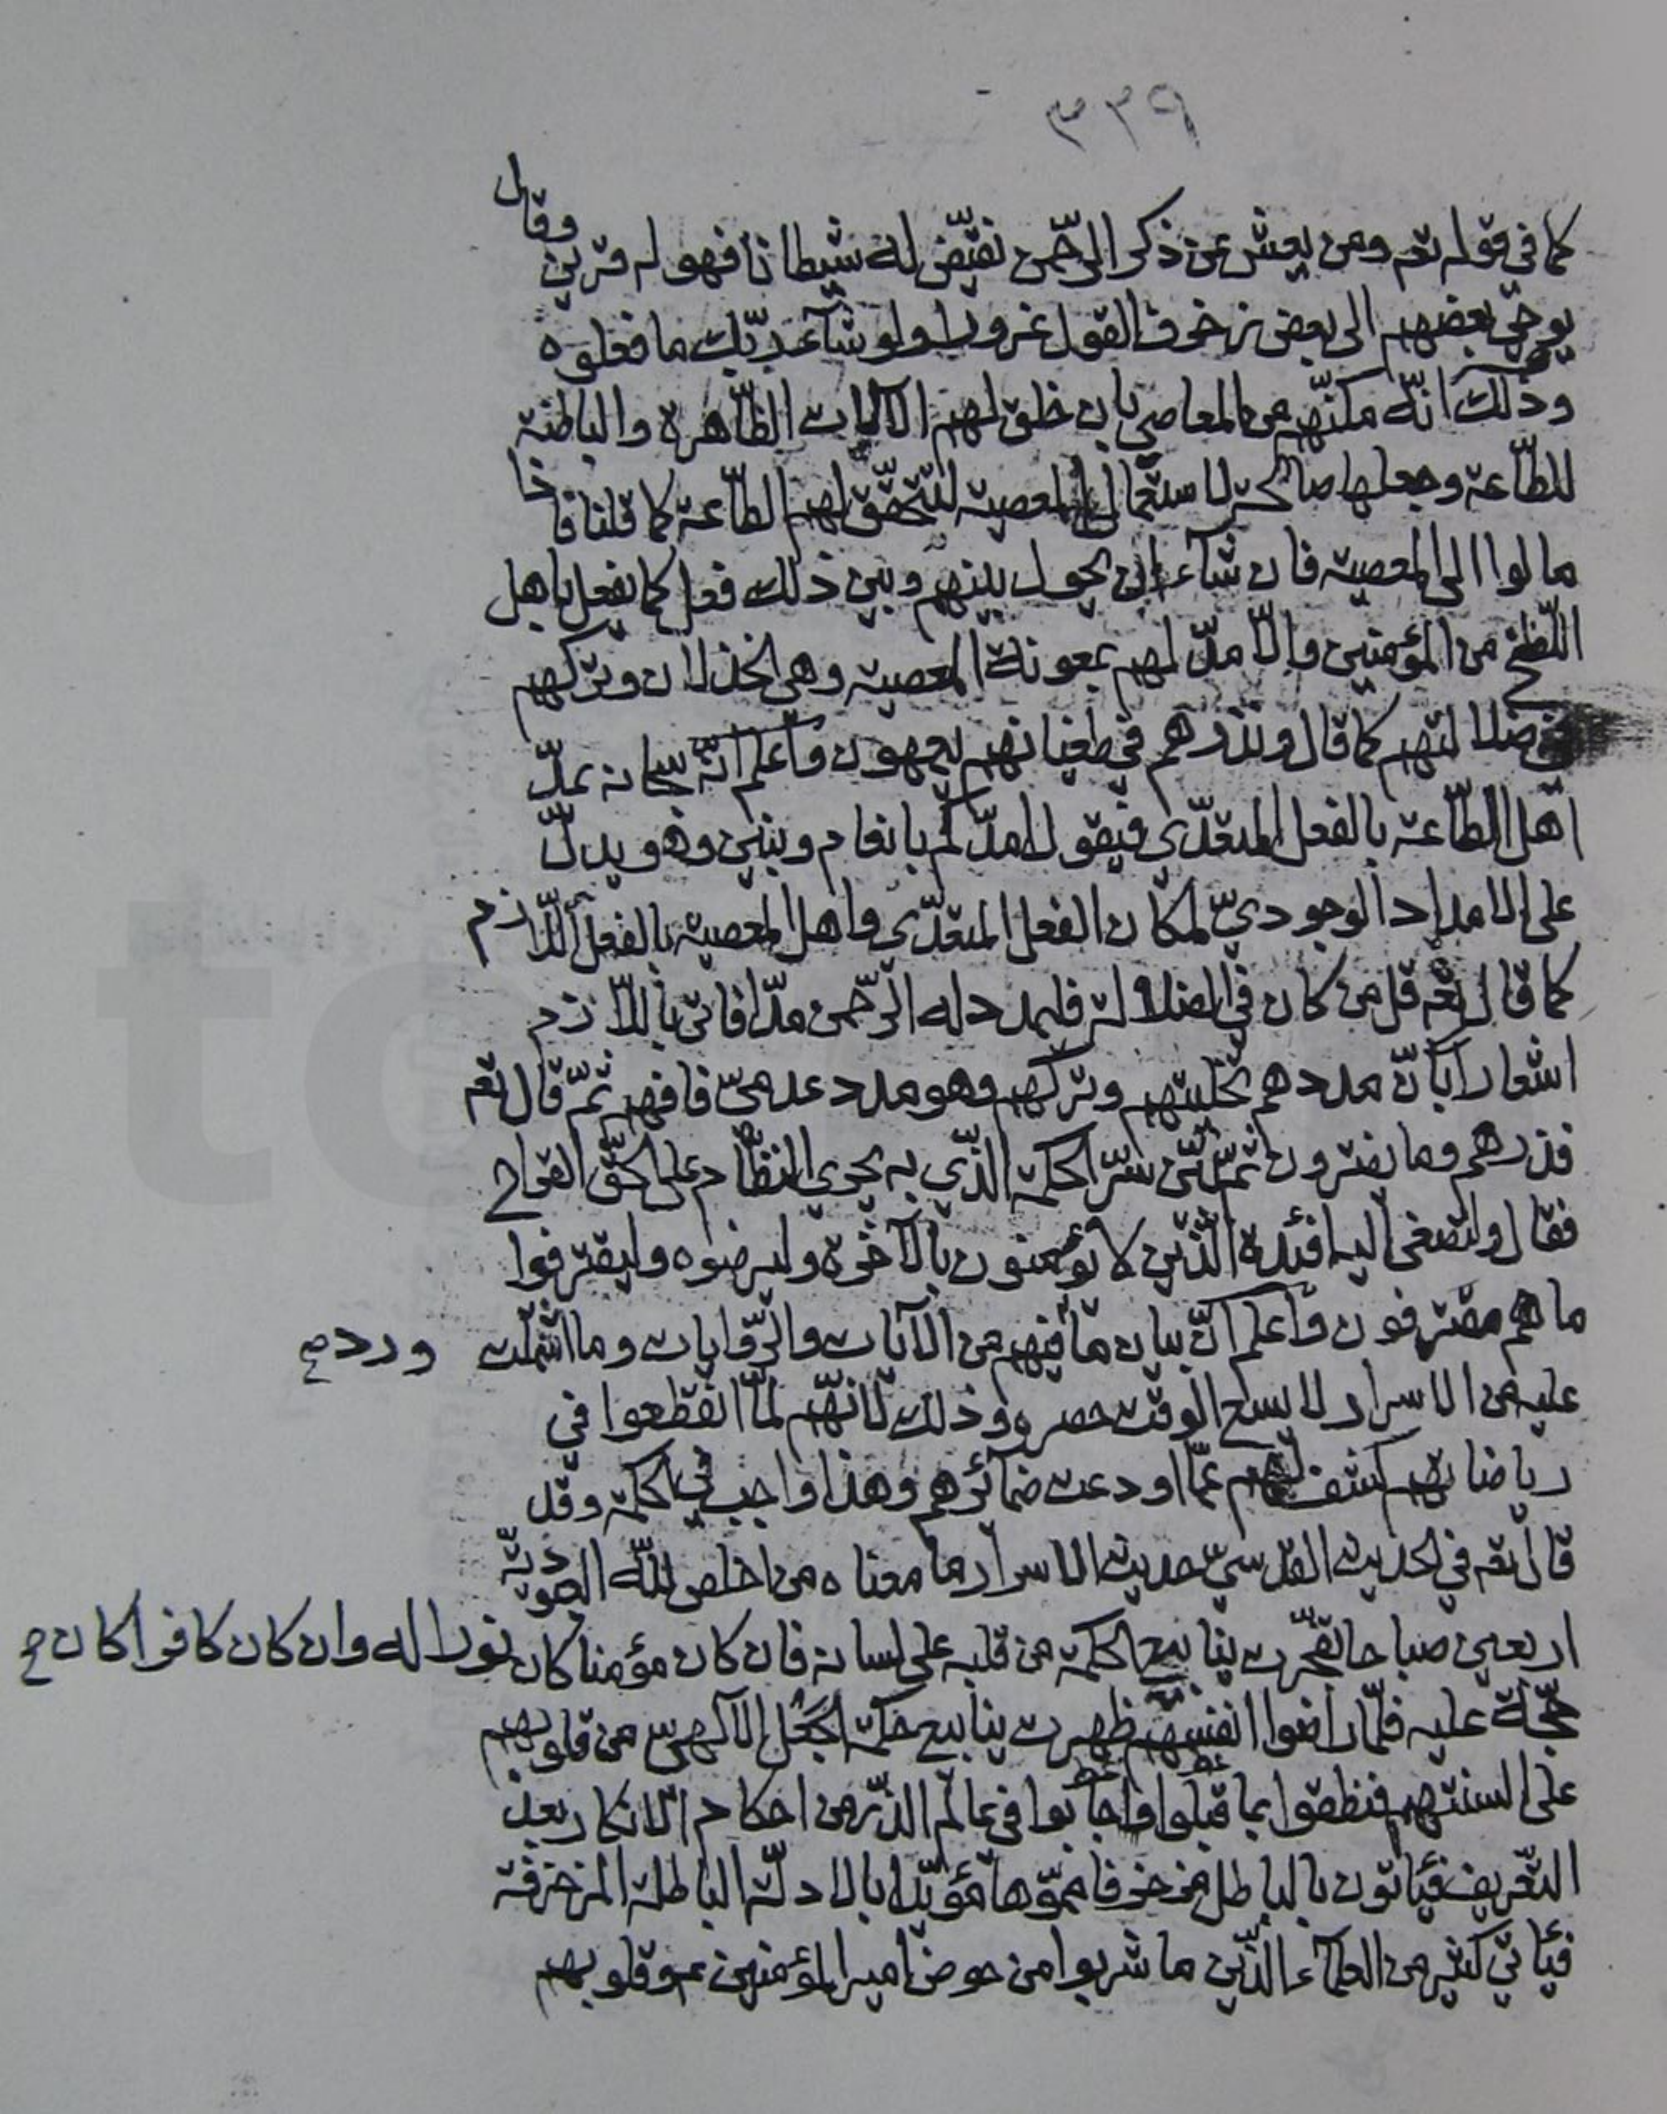 ٣٣٩
كما في قوله تعم ومن يعش عن ذكر الرّحمن نقيّض له شيطانا فهو له قرين وقال
يوحي بعضهم الى بعض زخرف القول غرورا ولو شآء ربّك ما فعلوه
وذلك انّه مكنّهم من المعاصي بان خلق لهم الآلات الظّاهرة والباطنة
للطّاعة وجعلها صالحة لاستعمال المعصية لتتحقّق لهم الطّاعة كما قلنا فاذا
مالوا الى المعصية فان شآء ان يحول بينهم وبين ذلك فعل كما يفعل باهل
اللّطخ من المؤمنين والّا مدّ لهم بمعونة المعصية وهي الخذلان وتركهم
في ضلالتهم كما قال ونذرهم في طغيانهم يعمهون واعلم انّه سبحانه يمدّ
اهل الطّاعة بالفعل المتعدّي فيقول امدّكم بانعام وبنين وهو يدلّ
على الامداد الوجوديّ لمكان الفعل المتعدّي واهل المعصية بالفعل اللّازم
كما قال تعم قل من كان في الضلالة فليمدد له الرّحمن مدّا فاتى باللّازم
اشعارا بانّ مددهم تخليتهم وتركهم وهو مدد عدميّ فافهم ثمّ قال تعم
فذرهم وما يفترون ثمّ بيّن سرّ الحكمة الذّي به يجري النظّام على الحقّ القراح
فقال ولتصغى اليه افئدة الّذين لا يؤمنون بالآخرة وليرضوه وليقترفوا
ما هم مقترفون واعلم انّ بيان ما فيهم من الآيات والرّوايات وما اشتملت
ورد صح
عليه من الاسرار لا يسع الوقت حصره وذلك لانّهم لمّا انقطعوا في
رياضاتهم كشف لهم عمّا اودعت ضمآئرهم وهذا واجب في الحكمة وقد
قال تعم في الحديث القدسيّ حديث الاسرار ما معناه من اخلص للّه العبوديّة
اربعين صباحا تفجّرت ينابيع الحكمة من قلبه على لسانه فان كان مؤمنا كان نورا له وان كان كافرا كان ح
حجّة عليه فلمّا راضوا انفسهم ظهرت ينابيع حكمة الجهل الآلهي من قلوبهم
على السنتهم فنطقوا بما قبلوا واجابوا في عالم الذّر من احكام الانكار بعد
التّعريف فيأتون بالباطل مزخرفا مموّها مؤيّدا بالادلّة الباطلة المزخرفة
فيأتي كثير من العلمآء الّذين ما شربوا من حوض امير المؤمنين عم وقلوبهم